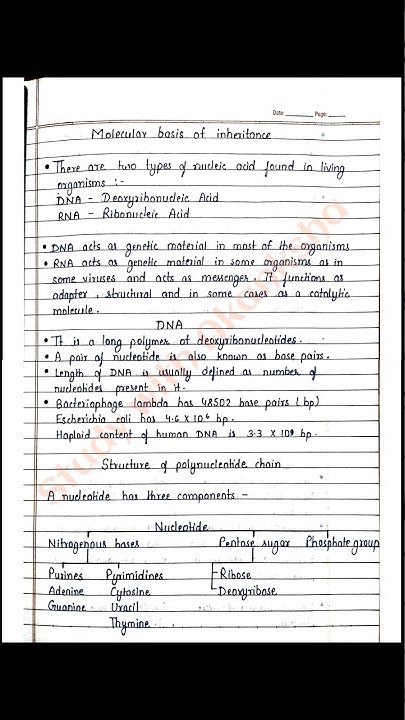 Date: Page:
Molecular basis of inheritance
• There are two types of nucleic acid found in living
organisms :-
DNA - Deoxyribonucleic Acid
RNA - Ribonucleic Acid
• DNA acts as genetic material in most of the organisms
• RNA acts as genetic material in some organisms as in
some viruses and acts as messenger. It functions as
adapter, structural and in some cases as a catalytic
molecule.
DNA
• It is a long polymer of deoxyribonucleotides.
• A pair of nucleotide is also known as base pairs.
• Length of DNA is usually defined as number of
nucleotides present in it.
• Bacteriophage lambda has 48502 base pairs (bp)
Escherichia coli has 4.6 X 10⁶ bp.
Haploid content of human DNA is 3.3 X 10⁹ bp.
Structure of polynucleotide chain
A nucleotide has three components -
Nucleotide
Nitrogenous bases Pentose sugar Phosphate group
Purines Pyrimidines Ribose
Adenine Cytosine Deoxyribose
Guanine Uracil
Thymine
Study with